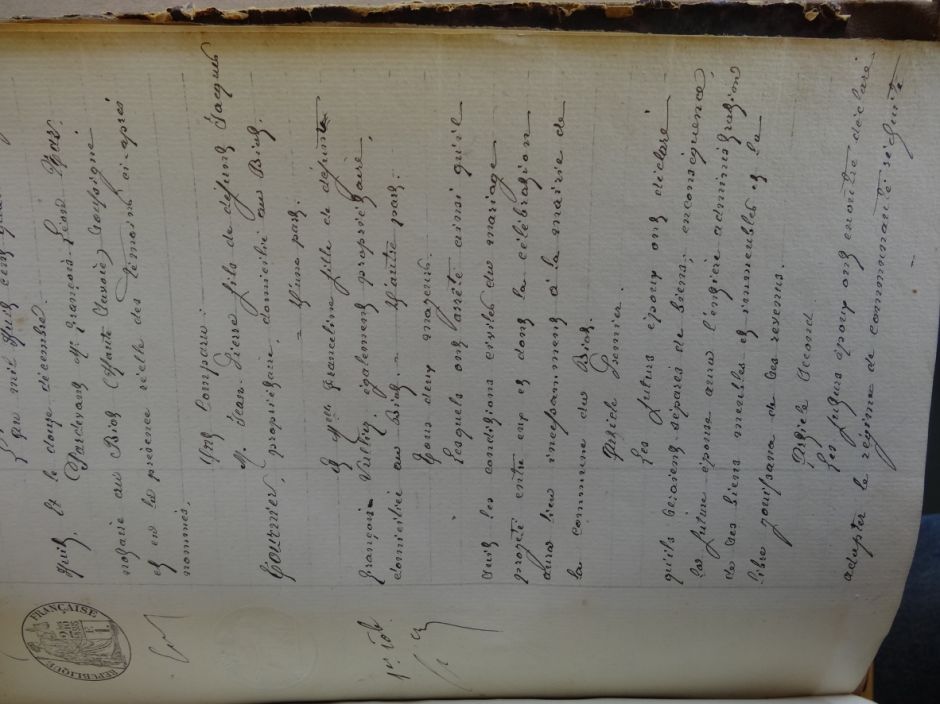 L'an mil huit cent qua
huit. Et le douze décembre.
Pardevant Me François Léon Plas.
notaire au Biot (Haute Savoie) soussigné
et en la présence réelle des témoins ci-après
nommés.
Ont comparu:
M. Jean Pierre fils de défunt Jacques
Gournier, propriétaire, domicilié au Biot.
d'une part.
Et Franceline fille de défunt
François Vulliez également propriétaire,
domiciliée au Biot d'autre part.
Tous deux majeurs.
Lesquels ont arrêté ainsi qu'il
suit les conditions civiles du mariage
projeté entre eux et dont la célébration
aura lieu incessamment à la mairie de
la commune du Biot.
Article Premier.
Les futurs époux ont déclaré
qu'ils seraient séparés de biens; en conséquence,
la future épouse aura l'entière administration
de ses biens meubles et immeubles et la
libre jouissance de ses revenus.
Article Second
Les futurs époux ont en outre déclaré
adopter le régime de communauté réduite
RÉPUBLIQUE FRANÇAISE
1er rôle